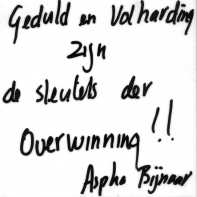 Geduld en Volharding
zijn
de sleutels der
Overwinning !!
Aspha Bijnaar